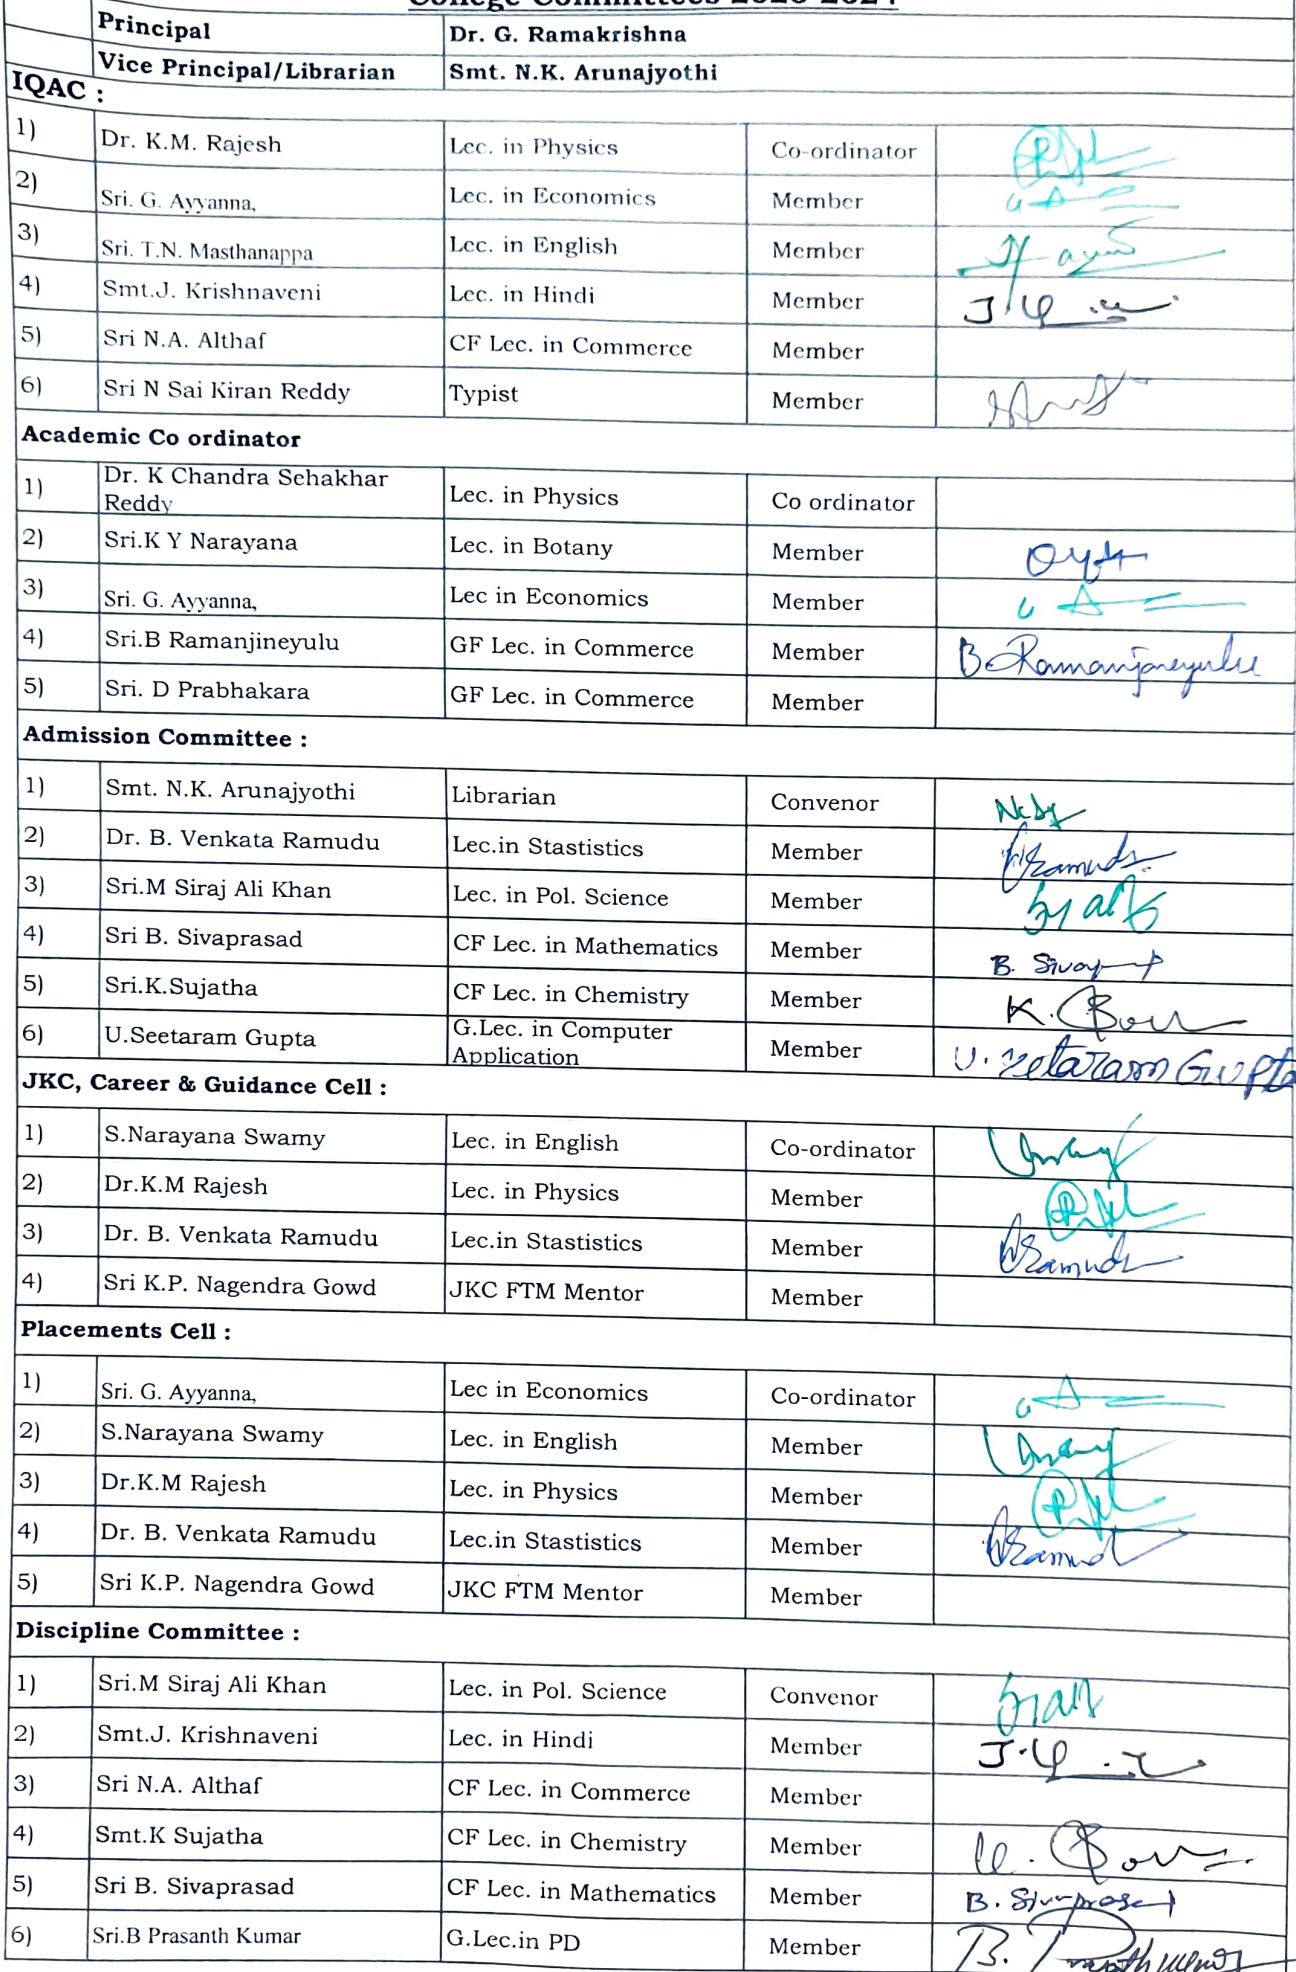 Principal Dr. G. Ramakrishna
Vice Principal/Librarian Smt. N.K. Arunajyothi
IQAC :
1) Dr. K.M. Rajesh Lec. in Physics Co-ordinator
2) Sri. G. Ayyanna, Lec. in Economics Member
3) Sri. T.N. Masthanappa Lec. in English Member
4) Smt.J. Krishnaveni Lec. in Hindi Member
5) Sri N.A. Althaf CF Lec. in Commerce Member
6) Sri N Sai Kiran Reddy Typist Member
Academic Co ordinator
1) Dr. K Chandra Sehakhar Reddy Lec. in Physics Co ordinator
2) Sri.K Y Narayana Lec. in Botany Member
3) Sri. G. Ayyanna, Lec in Economics Member
4) Sri.B Ramanjineyulu GF Lec. in Commerce Member B. Ramanjaneyulu
5) Sri. D Prabhakara GF Lec. in Commerce Member
Admission Committee :
1) Smt. N.K. Arunajyothi Librarian Convenor
2) Dr. B. Venkata Ramudu Lec.in Stastistics Member
3) Sri.M Siraj Ali Khan Lec. in Pol. Science Member
4) Sri B. Sivaprasad CF Lec. in Mathematics Member
5) Sri.K.Sujatha CF Lec. in Chemistry Member
6) U.Seetaram Gupta G.Lec. in Computer Application Member
JKC, Career & Guidance Cell :
1) S.Narayana Swamy Lec. in English Co-ordinator
2) Dr.K.M Rajesh Lec. in Physics Member
3) Dr. B. Venkata Ramudu Lec.in Stastistics Member
4) Sri K.P. Nagendra Gowd JKC FTM Mentor Member
Placements Cell :
1) Sri. G. Ayyanna, Lec in Economics Co-ordinator
2) S.Narayana Swamy Lec. in English Member
3) Dr.K.M Rajesh Lec. in Physics Member
4) Dr. B. Venkata Ramudu Lec.in Stastistics Member
5) Sri K.P. Nagendra Gowd JKC FTM Mentor Member
Discipline Committee :
1) Sri.M Siraj Ali Khan Lec. in Pol. Science Convenor
2) Smt.J. Krishnaveni Lec. in Hindi Member
3) Sri N.A. Althaf CF Lec. in Commerce Member
4) Smt.K Sujatha CF Lec. in Chemistry Member
5) Sri B. Sivaprasad CF Lec. in Mathematics Member B. Sivaprasad
6) Sri.B Prasanth Kumar G.Lec.in PD Member